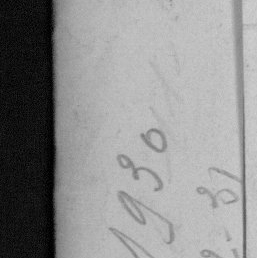 1930
2-31